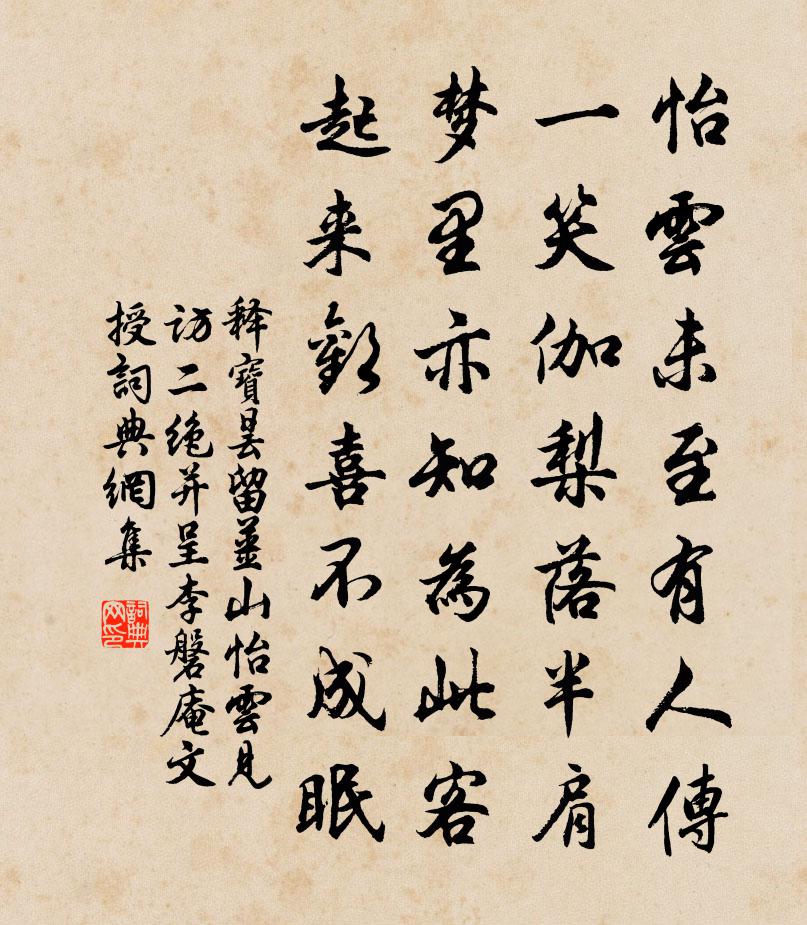 怡雲未至有人傳
一笑伽梨落半肩
梦里亦知為此客
起来歡喜不成眠
释寶曇留薑山怡雲見
访二绝并呈李磐庵文
授詞典網集
詞典网印